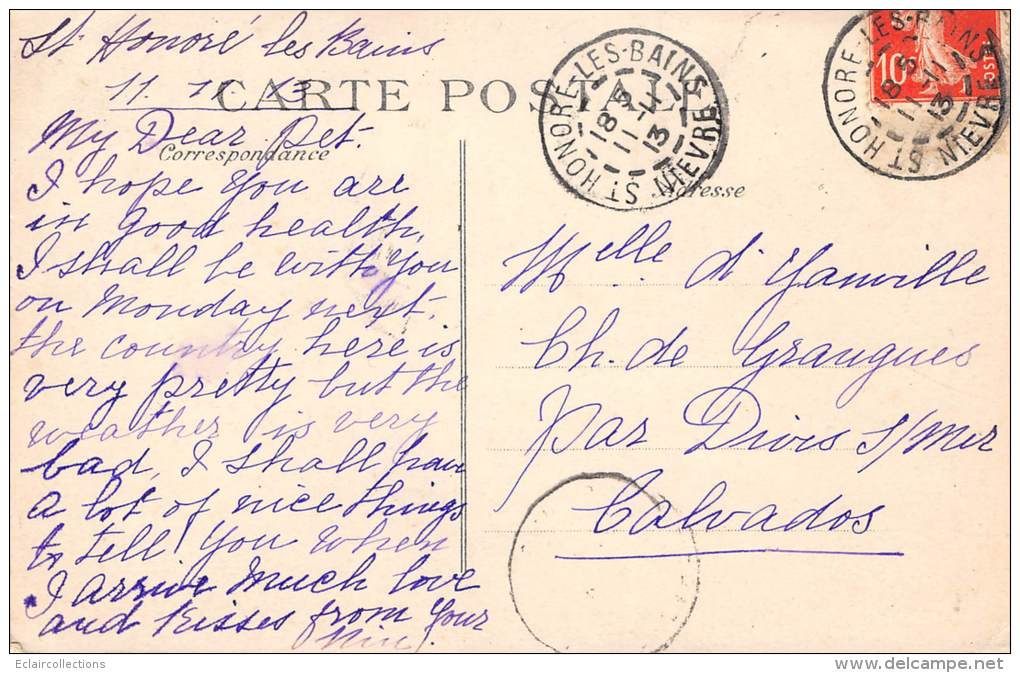 St Honoré les Bains
11. 11. 13
CARTE POSTALE
My Dear Pet.
Correspondance
I hope You are
in Good health,
I shall be with You
on Monday next.
the country here is
very pretty but the
weather is very
bad, I shall have
a lot of nice things
to tell! You when
I arrive Much love
and Kisses from Your
ST HONORE-LES-BAINS NIEVRE
18 5
11-11
13
ST HONORE-LES-BAINS NIEVRE
18 5
11-11
13
10
POSTES
Adresse
Melle d'Yanville
Ch. de Grangues
par Dives s/Mer
Calvados
Eclaircollections
delcampe.net